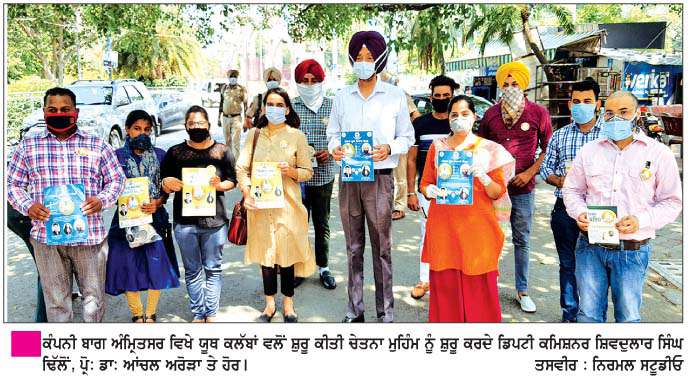 verka
ਕੰਪਨੀ ਬਾਗ ਅੰਮ੍ਰਿਤਸਰ ਵਿਖੇ ਯੂਥ ਕਲੱਬਾਂ ਵਲੋਂ ਸ਼ੁਰੂ ਕੀਤੀ ਚੇਤਨਾ ਮੁਹਿੰਮ ਨੂੰ ਸ਼ੁਰੂ ਕਰਦੇ ਡਿਪਟੀ ਕਮਿਸ਼ਨਰ ਸ਼ਿਵਦੁਲਾਰ ਸਿੰਘ
ਢਿੱਲੋਂ, ਪ੍ਰੋ: ਡਾ: ਆਂਚਲ ਅਰੋੜਾ ਤੇ ਹੋਰ। ਤਸਵੀਰ : ਨਿਰਮਲ ਸਟੂਡੀਓ